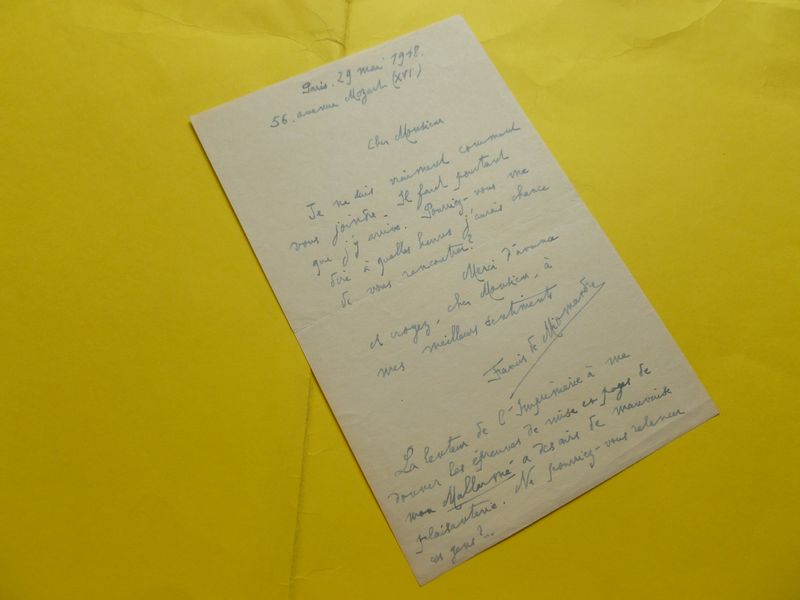 Paris. 29 mai 1948.
56. avenue Mozart (XVI)
Cher Monsieur
Je ne sais vraiment comment
vous joindre. Il faut pourtant
que j'y arrive. Pourriez-vous me
dire à quelles heures j'aurais chance
de vous rencontrer?
Merci d'avance
et croyez, cher Monsieur, à
mes meilleurs sentiments
Francis de Miomandre
La lenteur de l'Imprimerie à me
donner les épreuves de mise en pages de
mon Mallarmé a des airs de mauvaise
plaisanterie. Ne pourriez-vous relancer
ces gens?..